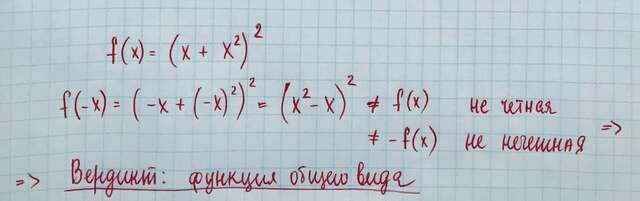 f(x) = (x + x²)²
f(-x) = (-x + (-x)²)² = (x² - x)² ≠ f(x) не чётная
≠ -f(x) не нечетная =>
=> Вердикт: функция общего вида